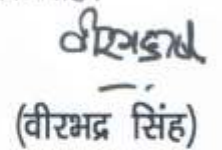 वीरभद्र
(वीरभद्र सिंह)